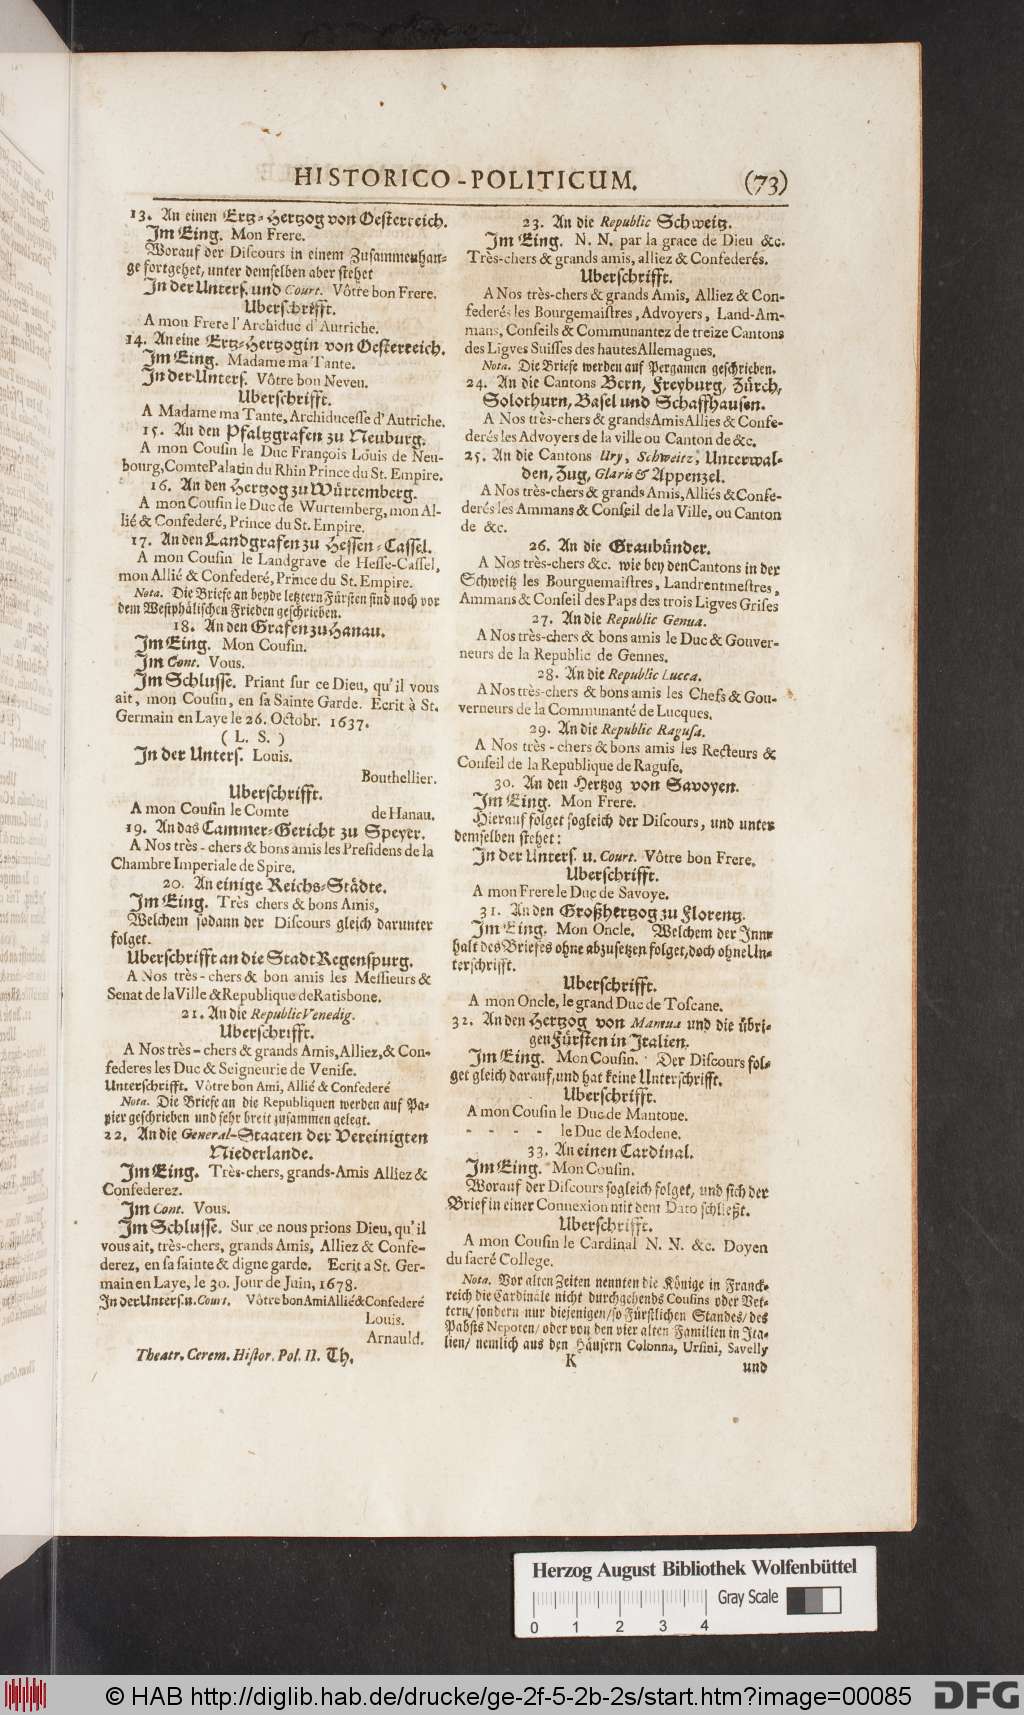 HISTORICO-POLITICUM. (73)
13. An einen Ertz-Hertzog von Oesterreich.
Im Eing. Mon Frere.
Worauf der Discours in einem Zusammenhan-
ge fortgehet, unter demselben aber stehet
In der Unters. und Court. Vôtre bon Frere.
Uberschrifft.
A mon Frere l'Archiduc d'Autriche.
14. An eine Ertz-Hertzogin von Oesterreich.
Im Eing. Madame ma Tante.
In der Unters. Vôtre bon Neveu.
Uberschrifft.
A Madame ma Tante, Archiducesse d'Autriche.
15. An den Pfaltzgrafen zu Neuburg.
A mon Cousin le Duc François Loüis de Neu-
bourg, Comte Palatin du Rhin Prince du St. Empire.
16. An den Hertzog zu Würtemberg.
A mon Cousin le Duc de Wurtemberg, mon Al-
lié & Confederé, Prince du St. Empire.
17. An den Landgrafen zu Hessen-Cassel.
A mon Cousin le Landgrave de Hesse-Cassel,
mon Allié & Confederé, Prince du St. Empire.
Nota. Die Briefe an beyde letztern Fürsten sind noch vor
dem Westphälischen Frieden geschrieben.
18. An den Grafen zu Hanau.
Im Eing. Mon Cousin.
Im Cont. Vous.
Im Schlusse. Priant sur ce Dieu, qu'il vous
ait, mon Cousin, en sa Sainte Garde. Ecrit à St.
Germain en Laye le 26. Octobr. 1637.
( L. S. )
In der Unters. Louis.
Bouthellier.
Uberschrifft.
A mon Cousin le Comte de Hanau.
19. An das Cammer-Gericht zu Speyer.
A Nos très-chers & bons amis les Presidens de la
Chambre Imperiale de Spire.
20. An einige Reichs-Städte.
Im Eing. Très chers & bons Amis,
Welchem sodann der Discours gleich darunter
folget.
Uberschrifft an die Stadt Regenspurg.
A Nos très-chers & bon amis les Messieurs &
Senat de la Ville & Republique de Ratisbone.
21. An die Republic Venedig.
Uberschrifft.
A Nos très-chers & grands Amis, Alliez, & Con-
federes les Duc & Seigneurie de Venise.
Unterschrifft. Vôtre bon Ami, Allié & Confederé
Nota. Die Briefe an die Republiquen werden auf Pa-
pier geschrieben und sehr breit zusammen gelegt.
22. An die General-Staaten der Vereinigten
Niederlande.
Im Eing. Très-chers, grands-Amis Alliez &
Confederez.
Im Cont. Vous.
Im Schlusse. Sur ce nous prions Dieu, qu'il
vous ait, très-chers, grands Amis, Alliez & Confe-
derez, en sa sainte & digne garde. Ecrit a St. Ger-
main en Laye, le 30. Jour de Juin, 1678.
In der Unters. u. Court. Vôtre bon Ami Allié & Confederé
Louis.
Arnauld.
Theatr. Cerem. Histor. Pol. II. Th.
23. An die Republic Schweitz.
Im Eing. N. N. par la grace de Dieu &c.
Très-chers & grands amis, alliez & Confederés.
Uberschrifft.
A Nos très-chers & grands Amis, Alliez & Con-
federés les Bourgemaistres, Advoyers, Land-Am-
mans, Conseils & Communantez de treize Cantons
des Ligves Suisses des hautes Allemagnes.
Nota. Die Briefe werden auf Pergamen geschrieben.
24. An die Cantons Bern, Freyburg, Zürch,
Solothurn, Basel und Schaffhausen.
A Nos très-chers & grands Amis Allies & Confe-
derés les Advoyers de la ville ou Canton de &c.
25. An die Cantons Ury, Schweitz, Unterwal-
den, Zug, Glaris & Appenzel.
A Nos très-chers & grands Amis, Alliés & Confe-
derés les Ammans & Conseil de la Ville, ou Canton
de &c.
26. An die Graubünder.
A Nos très-chers &c. wie bey den Cantons in der
Schweitz les Bourguemaistres, Landrentmestres,
Ammans & Conseil des Paps des trois Ligves Grises
27. An die Republic Genua.
A Nos très-chers & bons amis le Duc & Gouver-
neurs de la Republic de Gennes.
28. An die Republic Lucca.
A Nos très-chers & bons amis les Chefs & Gou-
verneurs de la Communanté de Lucques.
29. An die Republic Ragusa.
A Nos très-chers & bons amis les Recteurs &
Conseil de la Republique de Raguse.
30. An den Hertzog von Savoyen.
Im Eing. Mon Frere.
Hierauf folget sogleich der Discours, und unter
demselben stehet:
In der Unters. u. Court. Vôtre bon Frere.
Uberschrifft.
A mon Frere le Duc de Savoye.
31. An den Großhertzog zu Florentz.
Im Eing. Mon Oncle. Welchem der Inn-
halt des Briefes ohne abzusetzen folget, doch ohne Un-
terschrifft.
Uberschrifft.
A mon Oncle, le grand Duc de Toscane.
32. An den Hertzog von Mantua und die übri-
gen Fürsten in Italien.
Im Eing. Mon Cousin. Der Discours fol-
get gleich darauf, und hat keine Unterschrifft.
Uberschrifft.
A mon Cousin le Duc de Mantoue.
- - - - le Duc de Modene.
33. An einen Cardinal.
Im Eing. Mon Cousin.
Worauf der Discours sogleich folget, und sich der
Brief in einer Connexion mit dem Dato schließt.
Uberschrifft.
A mon Cousin le Cardinal N. N. &c. Doyen
du sacré College.
Nota. Vor alten Zeiten nennten die Könige in Franck-
reich die Cardinäle nicht durchgehends Cousins oder Vet-
tern/ sondern nur diejenigen/ so Fürstlichen Standes/ des
Pabsts Nepoten/ oder von den vier alten Familien in Ita-
lien/ nemlich aus den Häusern Colonna, Ursini, Savelly
K und
Herzog August Bibliothek Wolfenbüttel
Gray Scale
0 1 2 3 4
© HAB http://diglib.hab.de/drucke/ge-2f-5-2b-2s/start.htm?image=00085 DFG